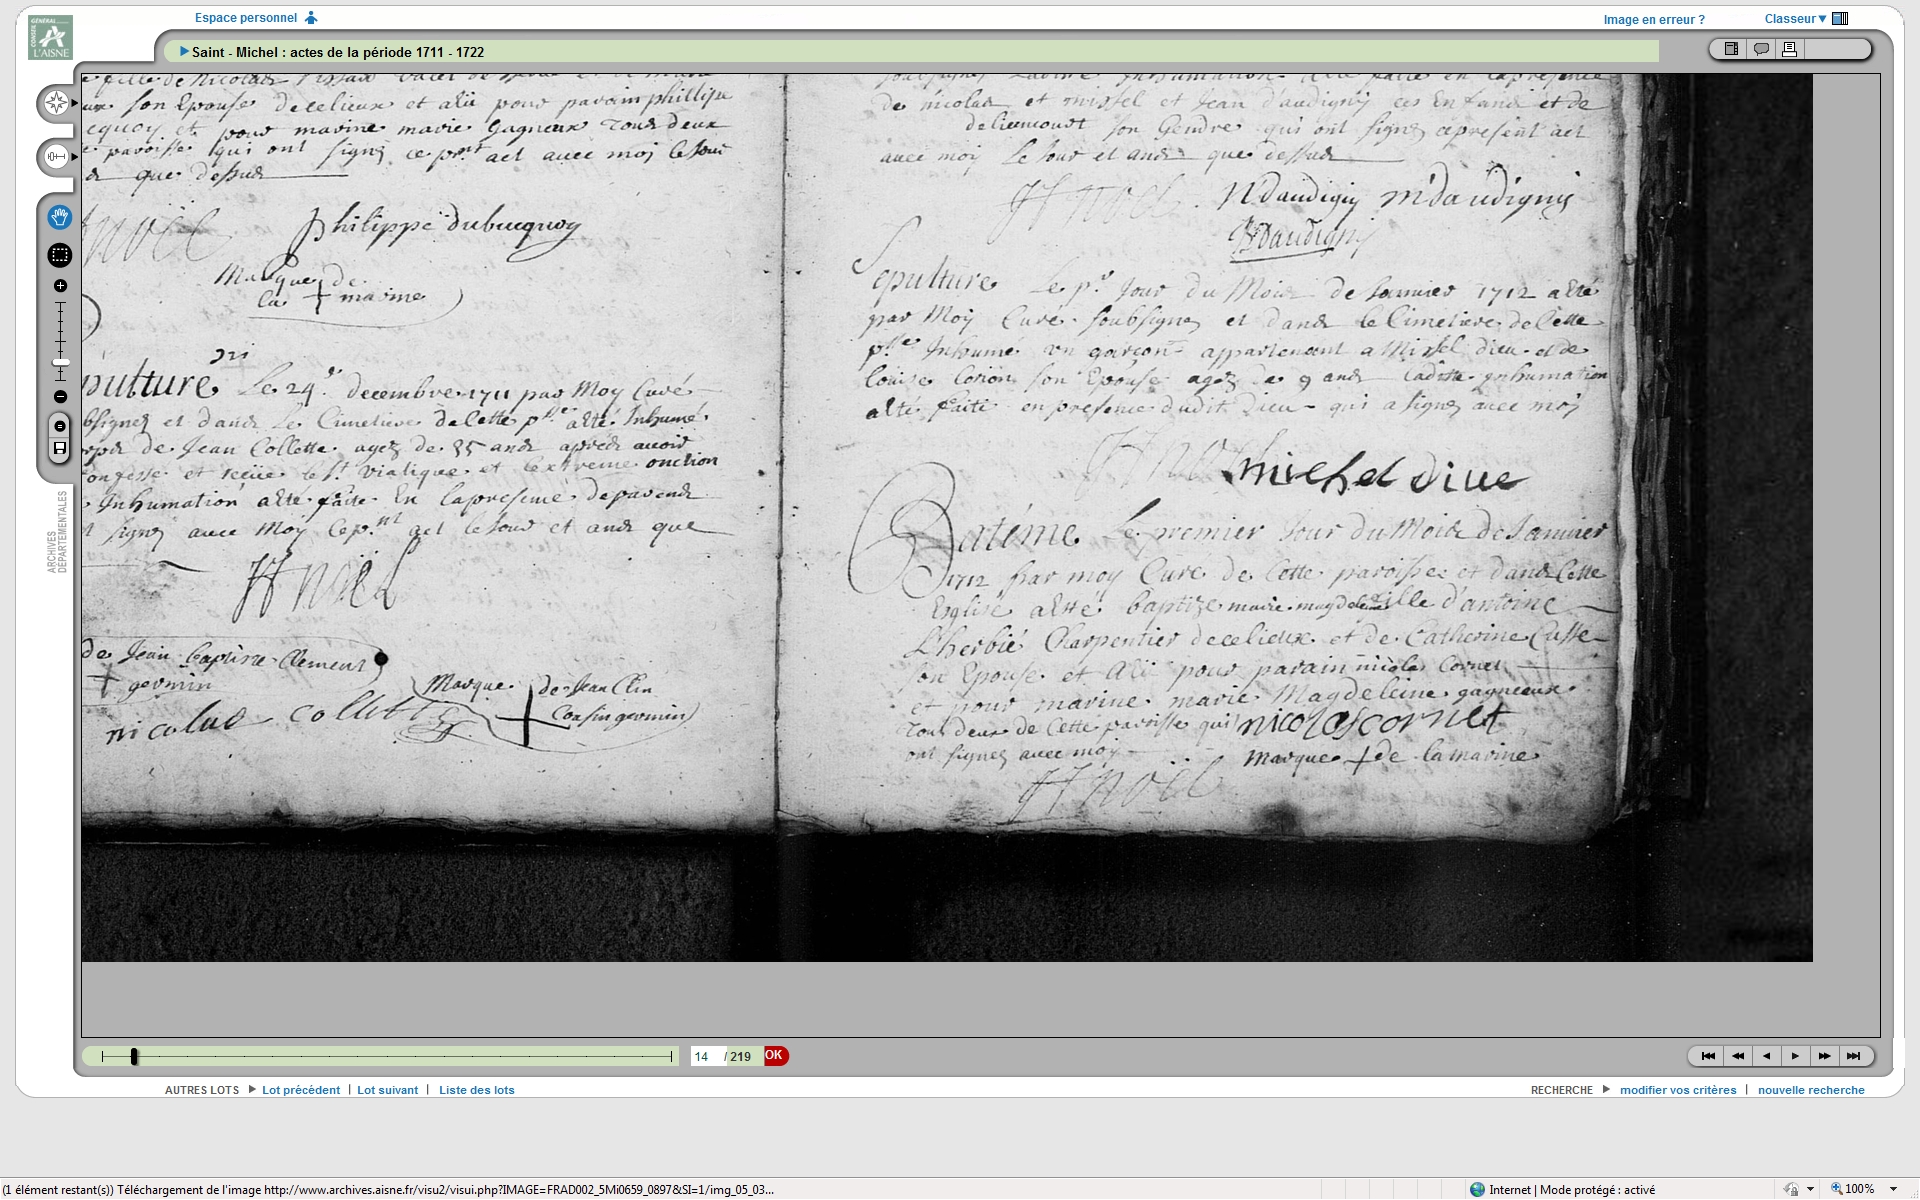 Espace personnel
Image en erreur ?
Classeur
GENERAL
CONSEIL
L'AISNE
Saint - Michel : actes de la période 1711 - 1722
fille de Nicolas
son Epouse decelieux et atü pour parain phillipe
et pour marine marie Gagneux Tous deux
paroisse qui ont signez ce pr.nt act avec moj le Jour
que dessus
HNoël philippe dubucquoy
Marque de
la + marine
pulture Le 24.e decembre 1711 par Moy Curé
bsignez et dans Le Cimetiere de Cette p.sse a esté Inhumé
de Jean Collette agez de 35 ans apres avoir
onfesse et reçüe le S.t viatique et lextreme onction
Inhumation a esté faite En la presence de
signez avec Moy Ce p.nt act le Jour et ans que
HNoël
de Jean baptiste Clement
+ germin
nicolas collette
Marque de Jean Clin
+ Cousin germin
Inhumation a esté faite en la presence
de nicolas et missel et Jean d'audigny ces Enfans et de
deliencourt son Gendre qui ont signez cepresent act
avec moy Le Jour et ans que dessus
HNoël NDaudigny m'daudigny
Daudigny
Sepulture Le p.r Jour du Mois de Janvier 1712 a esté
par Moy Curé soubsignez et dans le Cimetiere de Cette
p.sse Inhumé un garçon appartenant a Missel dieu et de
louise Corion son Epouse agez de 9 ans Laditte Inhumation
a esté faite en presence dudit Dieu qui a signez avec moj
HNoël michel diue
Batéme Le premier Jour du Mois de Janvier
1712 par moy Curé de Cette paroisse et dans Cette
Eglise a esté baptize marie magdeleine fille d'antoine
L'herbié Charpentier decelieux et de Catherine Cusse
son Epouse et atü pour parain nicolas Cornet
et pour marine marie Magdeleine gagneux
Tous deux de Cette paroisse qui nicolas cornet
ont signez avec moy Marque + de la marine
HNoël
ARCHIVES
DÉPARTEMENTALES
14 / 219 OK
AUTRES LOTS Lot précédent | Lot suivant | Liste des lots
RECHERCHE modifier vos critères | nouvelle recherche
(1 élément restant(s)) Téléchargement de l'image http://www.archives.aisne.fr/visu2/visui.php?IMAGE=FRAD002_5Mi0659_0897&SI=1/img_05_03...
Internet | Mode protégé : activé
100%